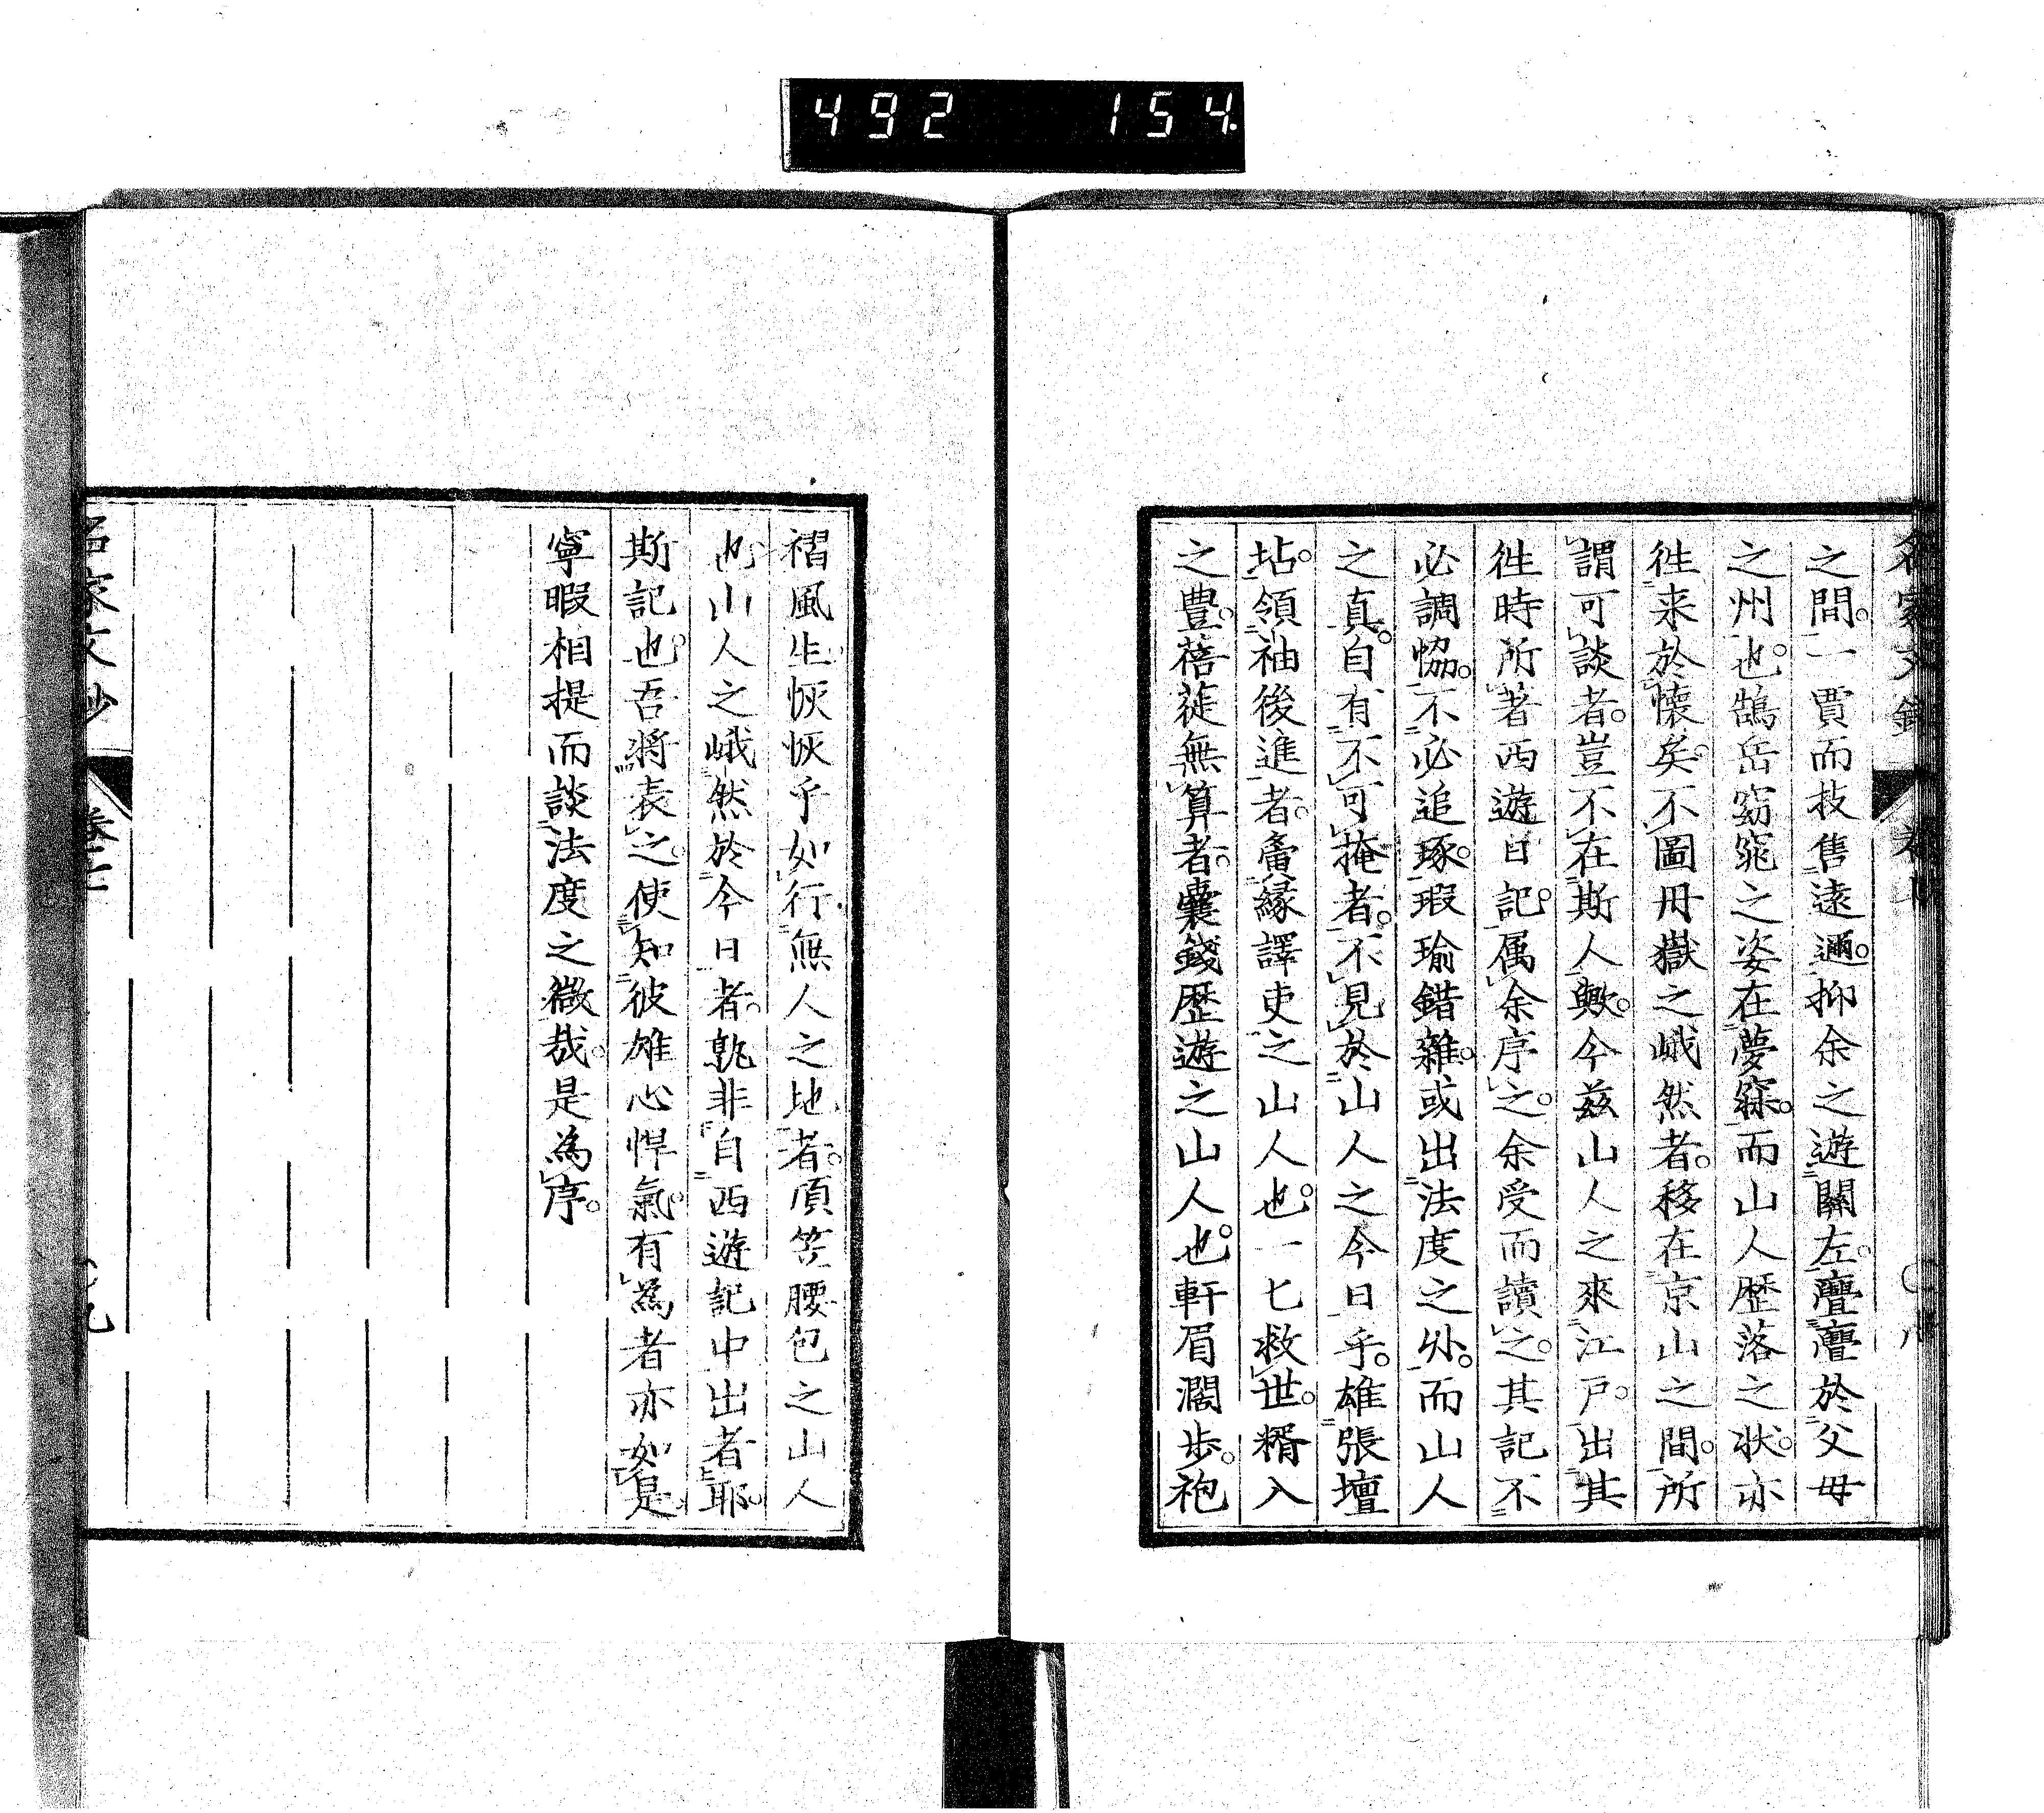 492 154.
之間。一賈而技售遠邇。抑余之遊關左。亹亹於父母
之州也。鵠岳窈窕之姿在夢寐。而山人歴落之状。亦
徃来於懐矣。不圖冊嶽之峨然者。移在京山之間。所
謂可談者。豈不在斯人歟。今玆山人之來江戸。出其
徃時所著西遊日記。属余序之。余受而讀之。其記不
必調恊。不必追琢。瑕瑜錯雜。或出法度之外。而山人
之真。自有不可掩者。不見於山人之今日乎。雄張壇
坫。領袖後進者。夤縁譯吏之山人也。一匕救世。糈入
之豊。蓓蓰無算者。嚢錢歴遊之山人也。軒眉濶歩。袍
褶風生恢恢乎如行無人之地者。頂笠腰包之山人
也。山人之峨然於今日者。孰非自西遊記中出者耶。
斯記也。吾將表之。使知彼雄心悍氣。有為者亦如是
寧暇相提而談法度之微哉。是為序。
名家文抄 巻十二 〇九